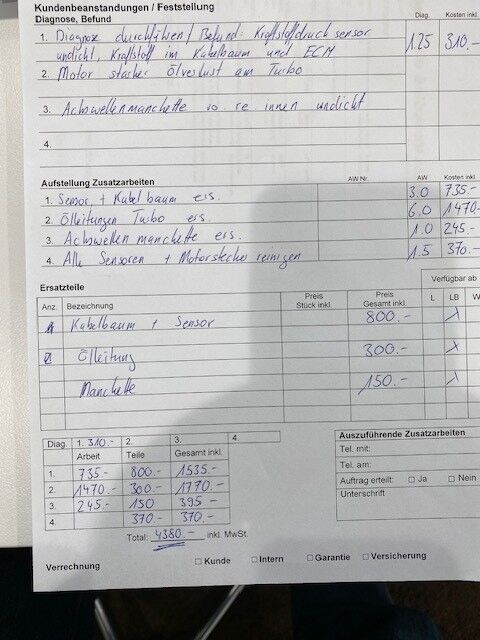 Kundenbeanstandungen / Feststellung
Diagnose, Befund Diag. Kosten inkl.
1. Diagnose durchführen / Befund: Kraftstoffdruck sensor 1.25 310.-
undicht, Kraftstoff im Kabelbaum und ECM
2. Motor starker Ölverlust am Turbo
3. Achswellenmanchette vo. re. innen undicht
4.
Aufstellung Zusatzarbeiten AW Nr. AW Kosten inkl.
1. Sensor, + Kabelbaum ers. 3.0 735.-
2. Ölleitungen Turbo ers. 6.0 1470.-
3. Achswellen manchette ers. 1.0 245.-
4. Alle Sensoren + Motorstecker reinigen 1.5 370.-
Ersatzteile Verfügbar ab
Anz. Bezeichnung Preis Stück inkl. Preis Gesamt inkl. L LB W
1 Kabelbaum + Sensor 800.- x
Ölleitung 300.- x
Manchette 150.- x
Diag. 1. 310.- 2. 3. 4.
Arbeit Teile Gesamt inkl.
1. 735.- 800.- 1535.-
2. 1470.- 300.- 1770.-
3. 245.- 150 395.-
4. 370.- 370.-
Total: 4380.- inkl. MwSt.
Auszuführende Zusatzarbeiten
Tel. mit:
Tel. am:
Auftrag erteilt: ☐ Ja ☐ Nein
Unterschrift
Verrechnung ☐ Kunde ☐ Intern ☐ Garantie ☐ Versicherung